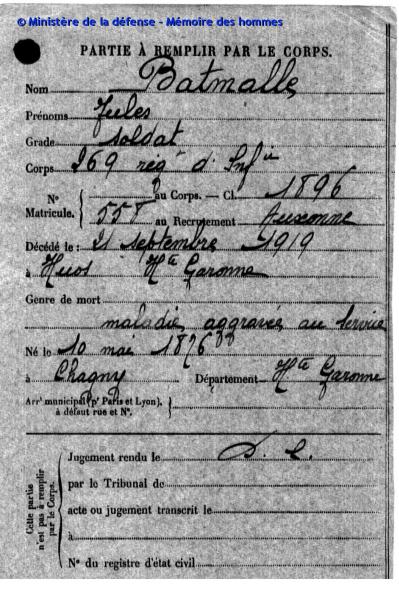 © Ministère de la défense - Mémoire des hommes
PARTIE À REMPLIR PAR LE CORPS.
Nom Batmalle
Prénoms Jules
Grade soldat
Corps 269 rég t d' Inf ie
N° Matricule. { au Corps. — Cl. 1896
558 au Recrutement Auxonne
Décédé le : 21 septembre 1919
à Huos Hte Garonne
Genre de mort
maladie aggravée au service
Né le 10 mai 1876
à Chagny Département Hte Garonne
Arr t municipal (p r Paris et Lyon),
à défaut rue et N°.
Cette partie n'est pas à remplir par le Corps.
Jugement rendu le
par le Tribunal de
acte ou jugement transcrit le
à
N° du registre d'état civil